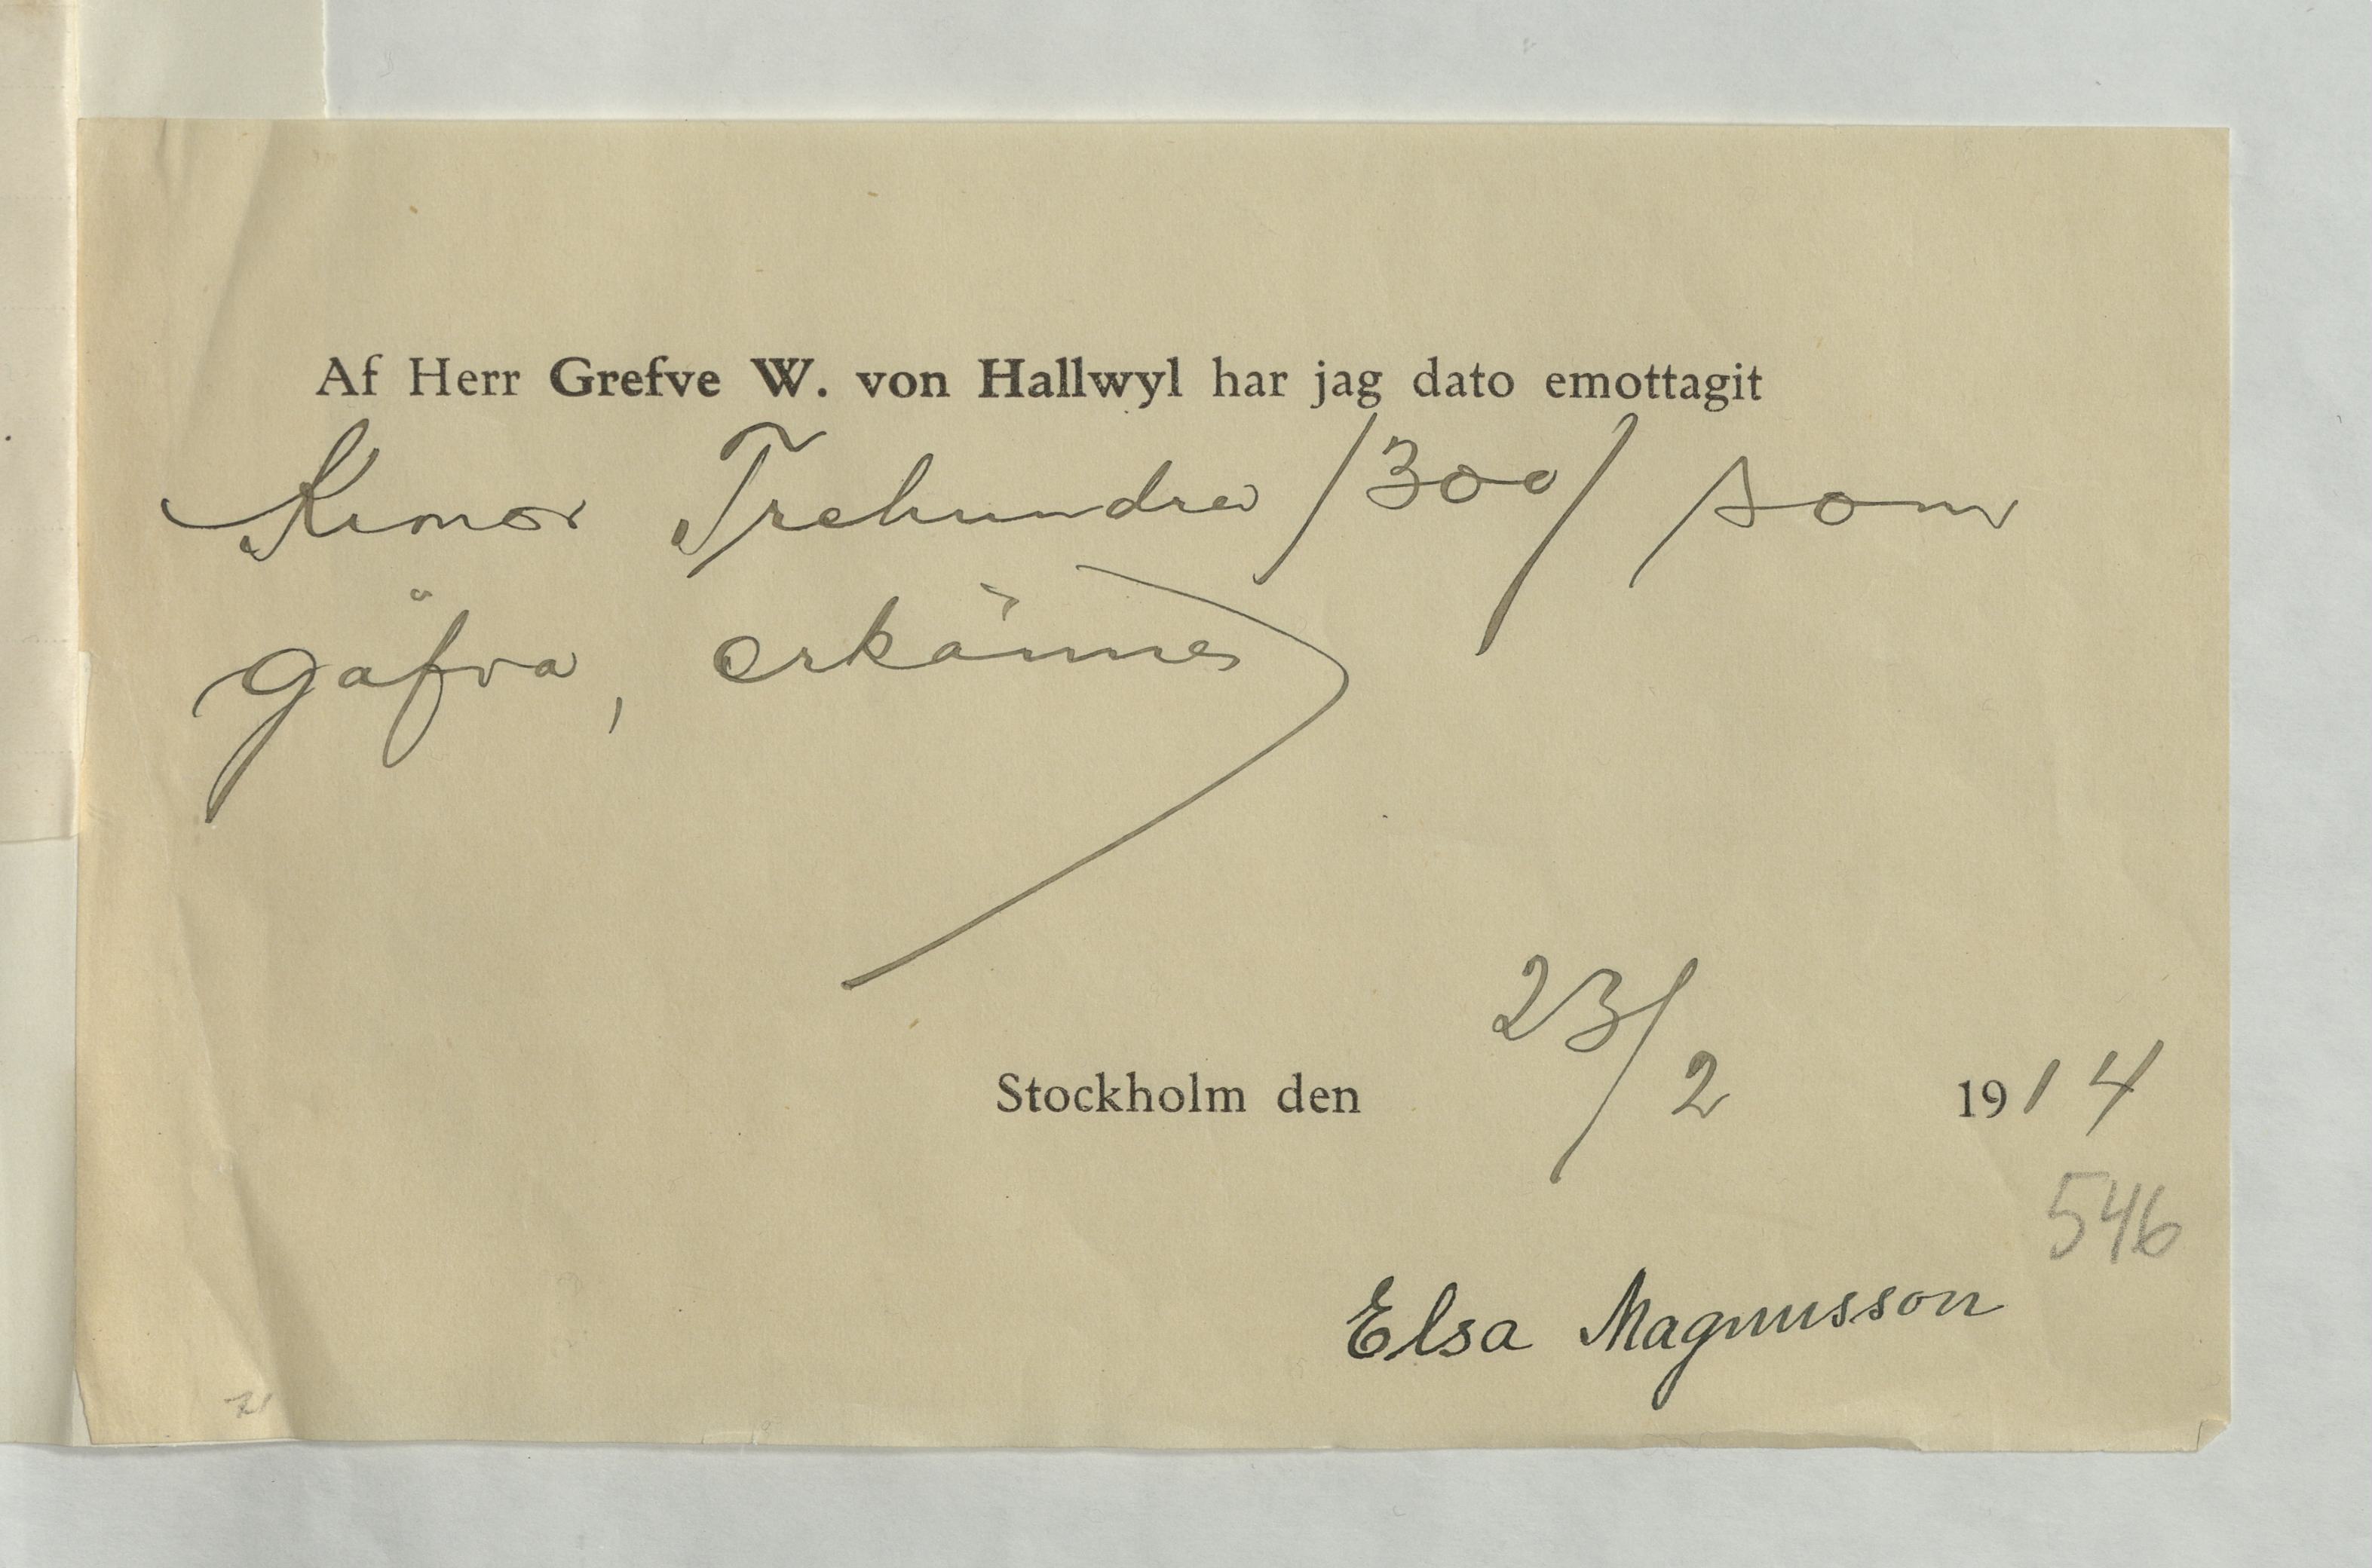 Af Herr Grefve W. von Hallwyl har jag dato emottagit
Kronor Trehundra /300/ som
gåfva, erkännes
Stockholm den 23/2 1914
546
Elsa Magnusson